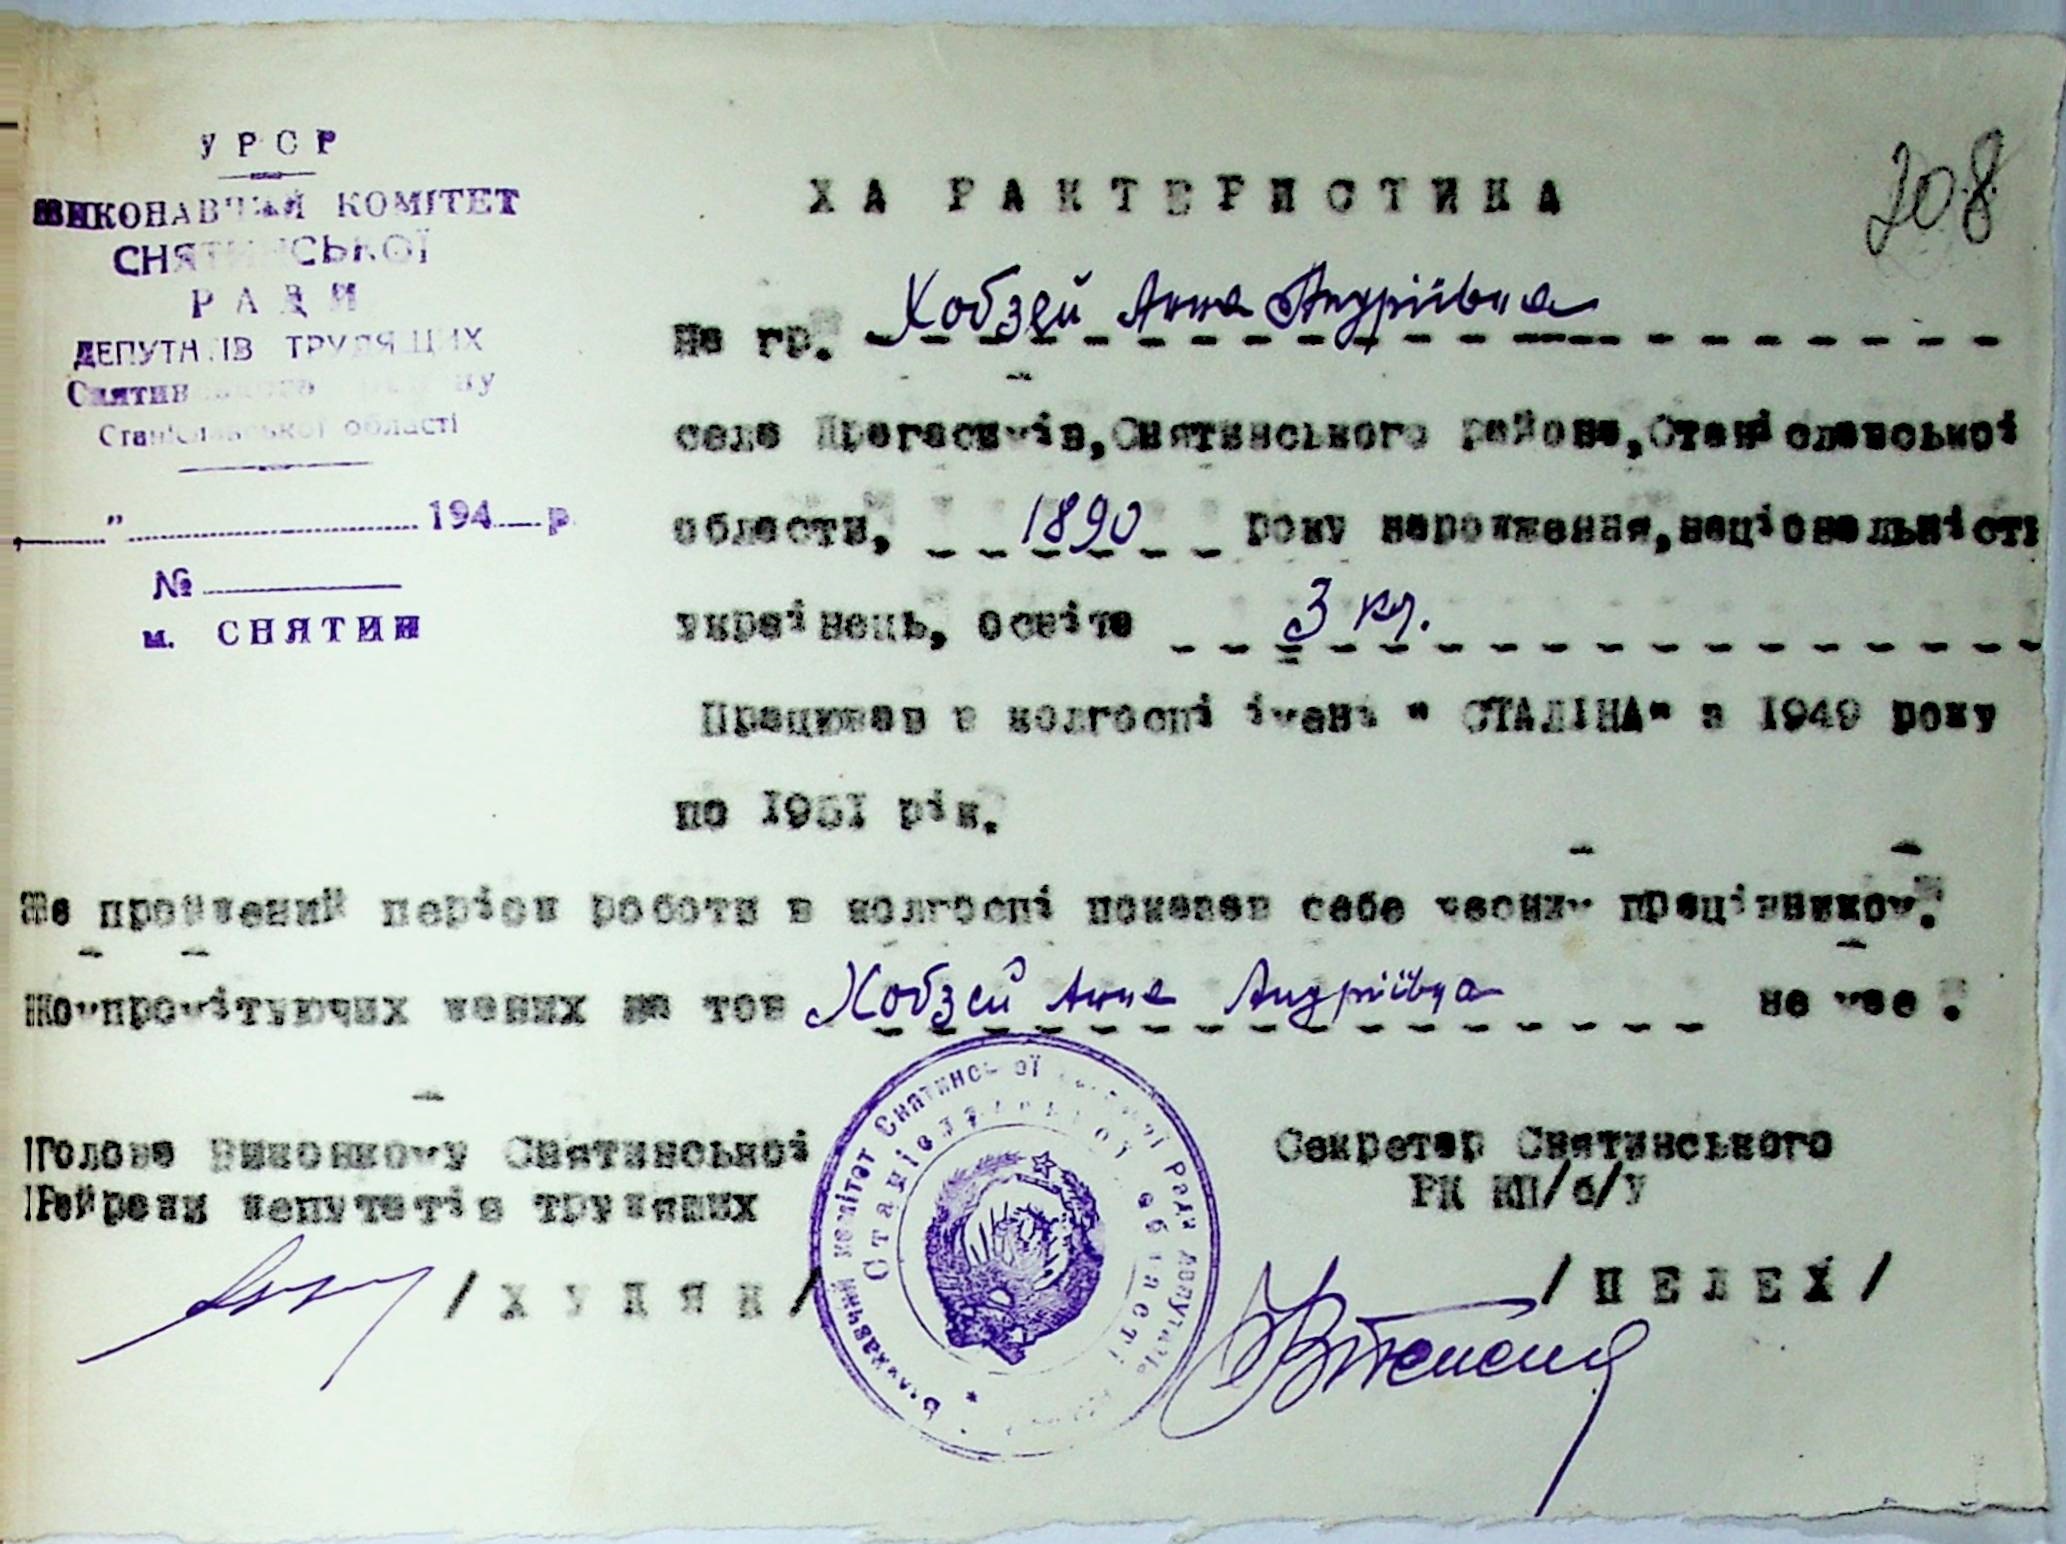 УРСР
ВИКОНАВЧИЙ КОМІТЕТ
СНЯТИНСЬКОЇ
РАДИ
ДЕПУТАТІВ ТРУДЯЩИХ
Снятинського району
Станіславської області
" 194 р
№
м. СНЯТИН
208
ХАРАКТЕРИСТИКА
На гр. Хобзей Анна Андріївна
село Прегасимів, Снятинського району, Станіславської
області, 1890 року народження, національність
українець, освіта 3 кл.
Працював в колгоспі імені " СТАЛІНА" з 1949 року
по 1951 рік.
За пройдений період роботи в колгоспі показав себе чесним працівником.
Компромітуючих даних на тов Хобзей Анна Андріївна не має .
Голова Виконкому Снятинської
Райради депутатів трудящих
/ Х У Д Я К /
Секретар Снятинського
РК КП/б/У
/ П Е Л Е Х /
Виконавчий комітет Снятинської районної Ради депутатів
Станіславської області